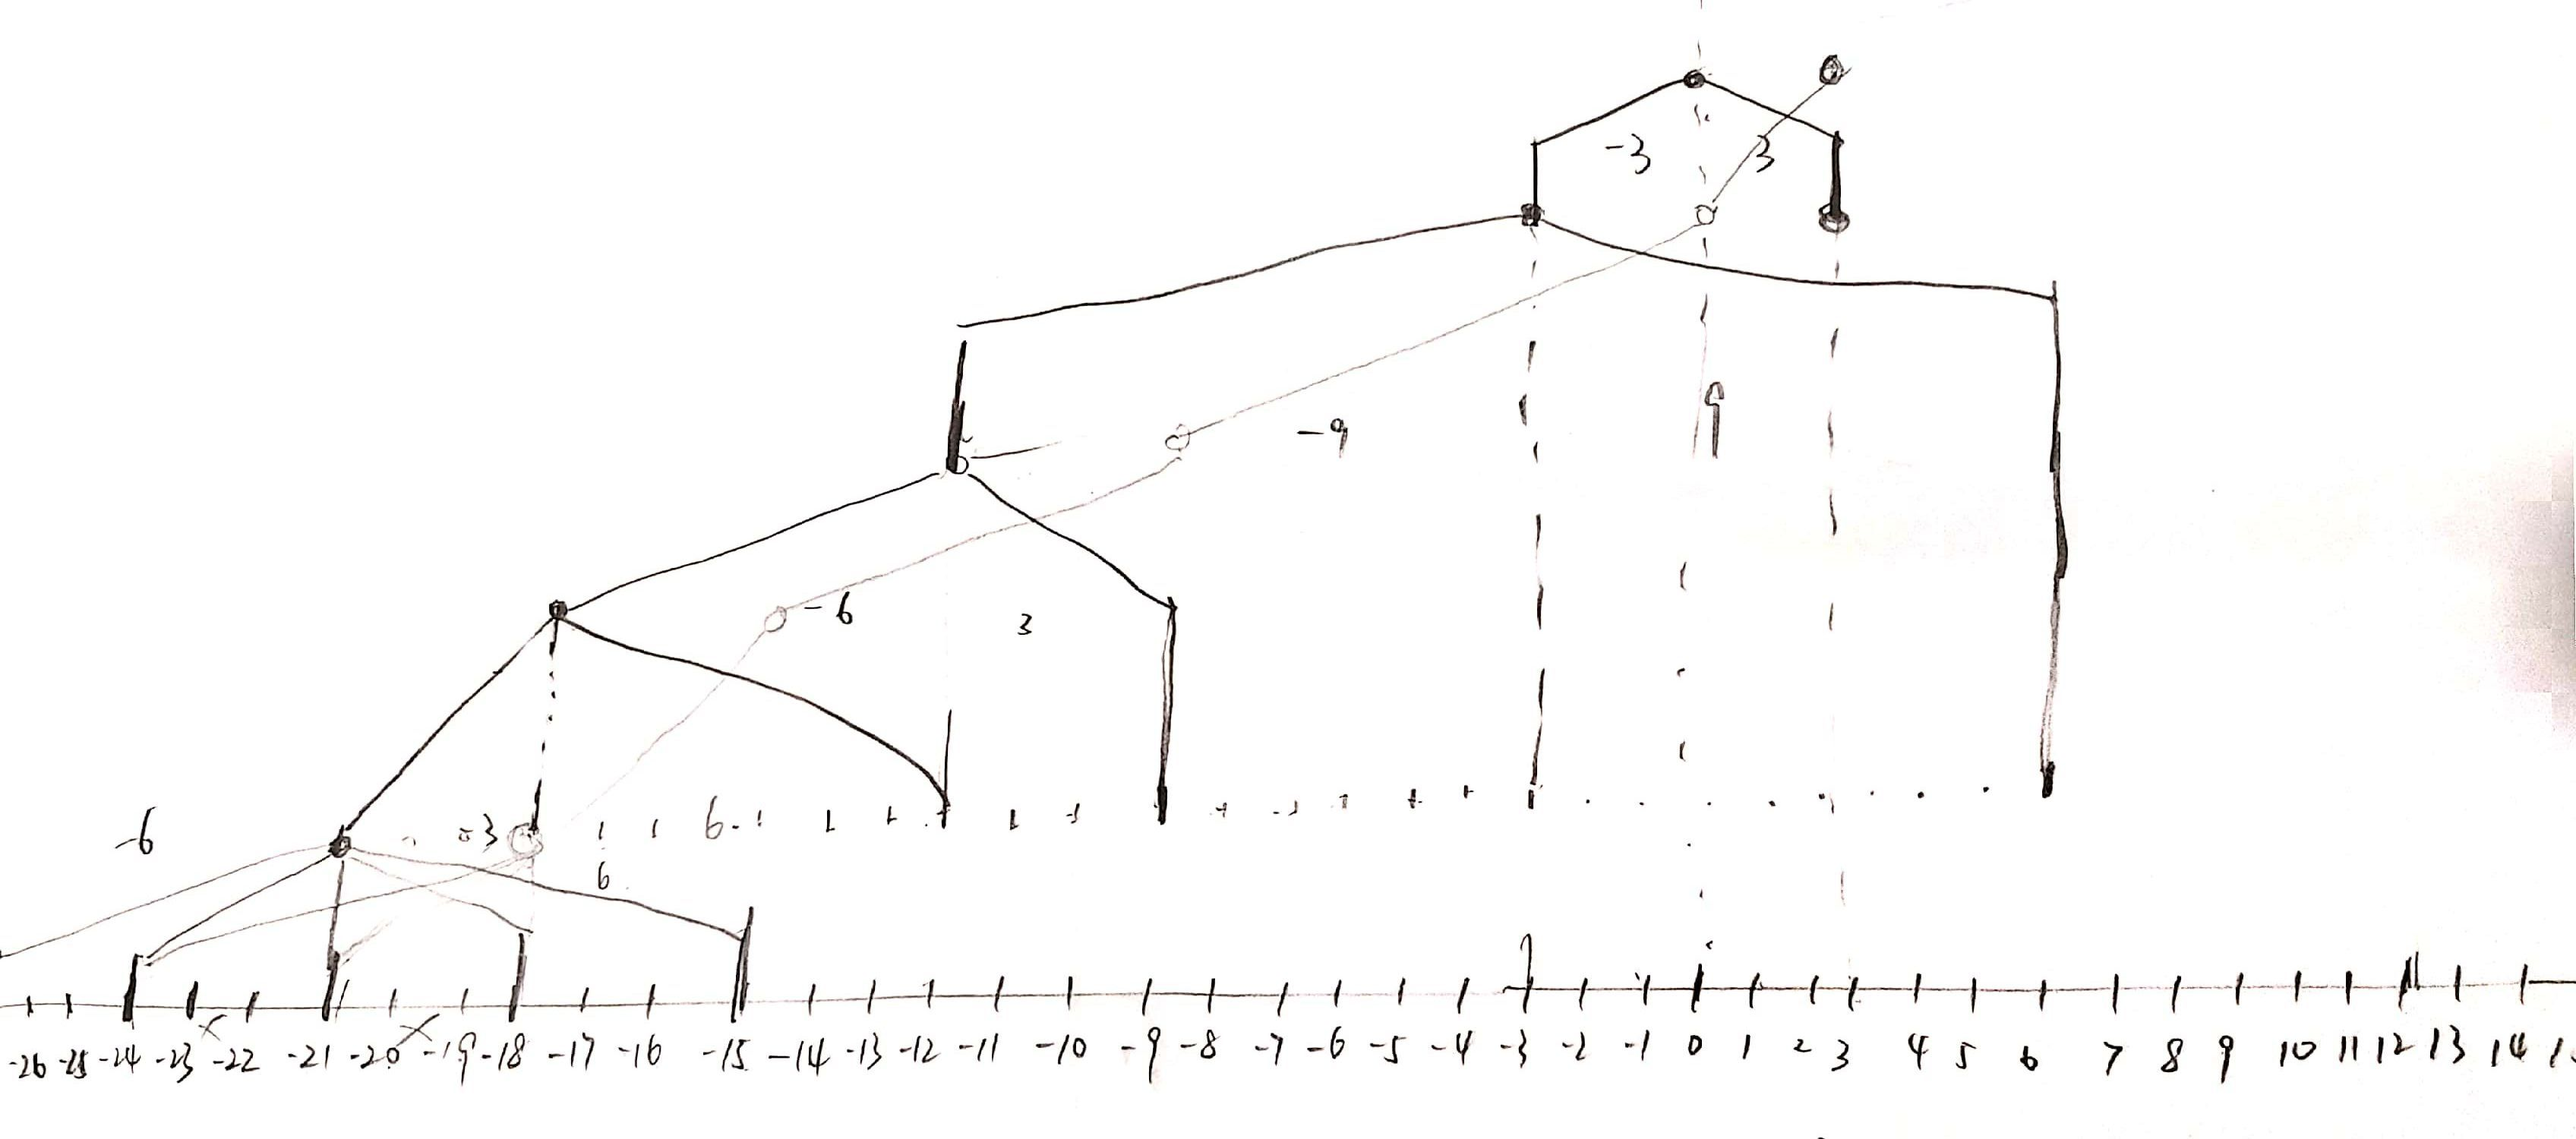 -3 3
9
-9
-6 3
-6 -3 6
6
-26 -25 -24 -23 -22 -21 -20 -19 -18 -17 -16 -15 -14 -13 -12 -11 -10 -9 -8 -7 -6 -5 -4 -3 -2 -1 0 1 2 3 4 5 6 7 8 9 10 11 12 13 14